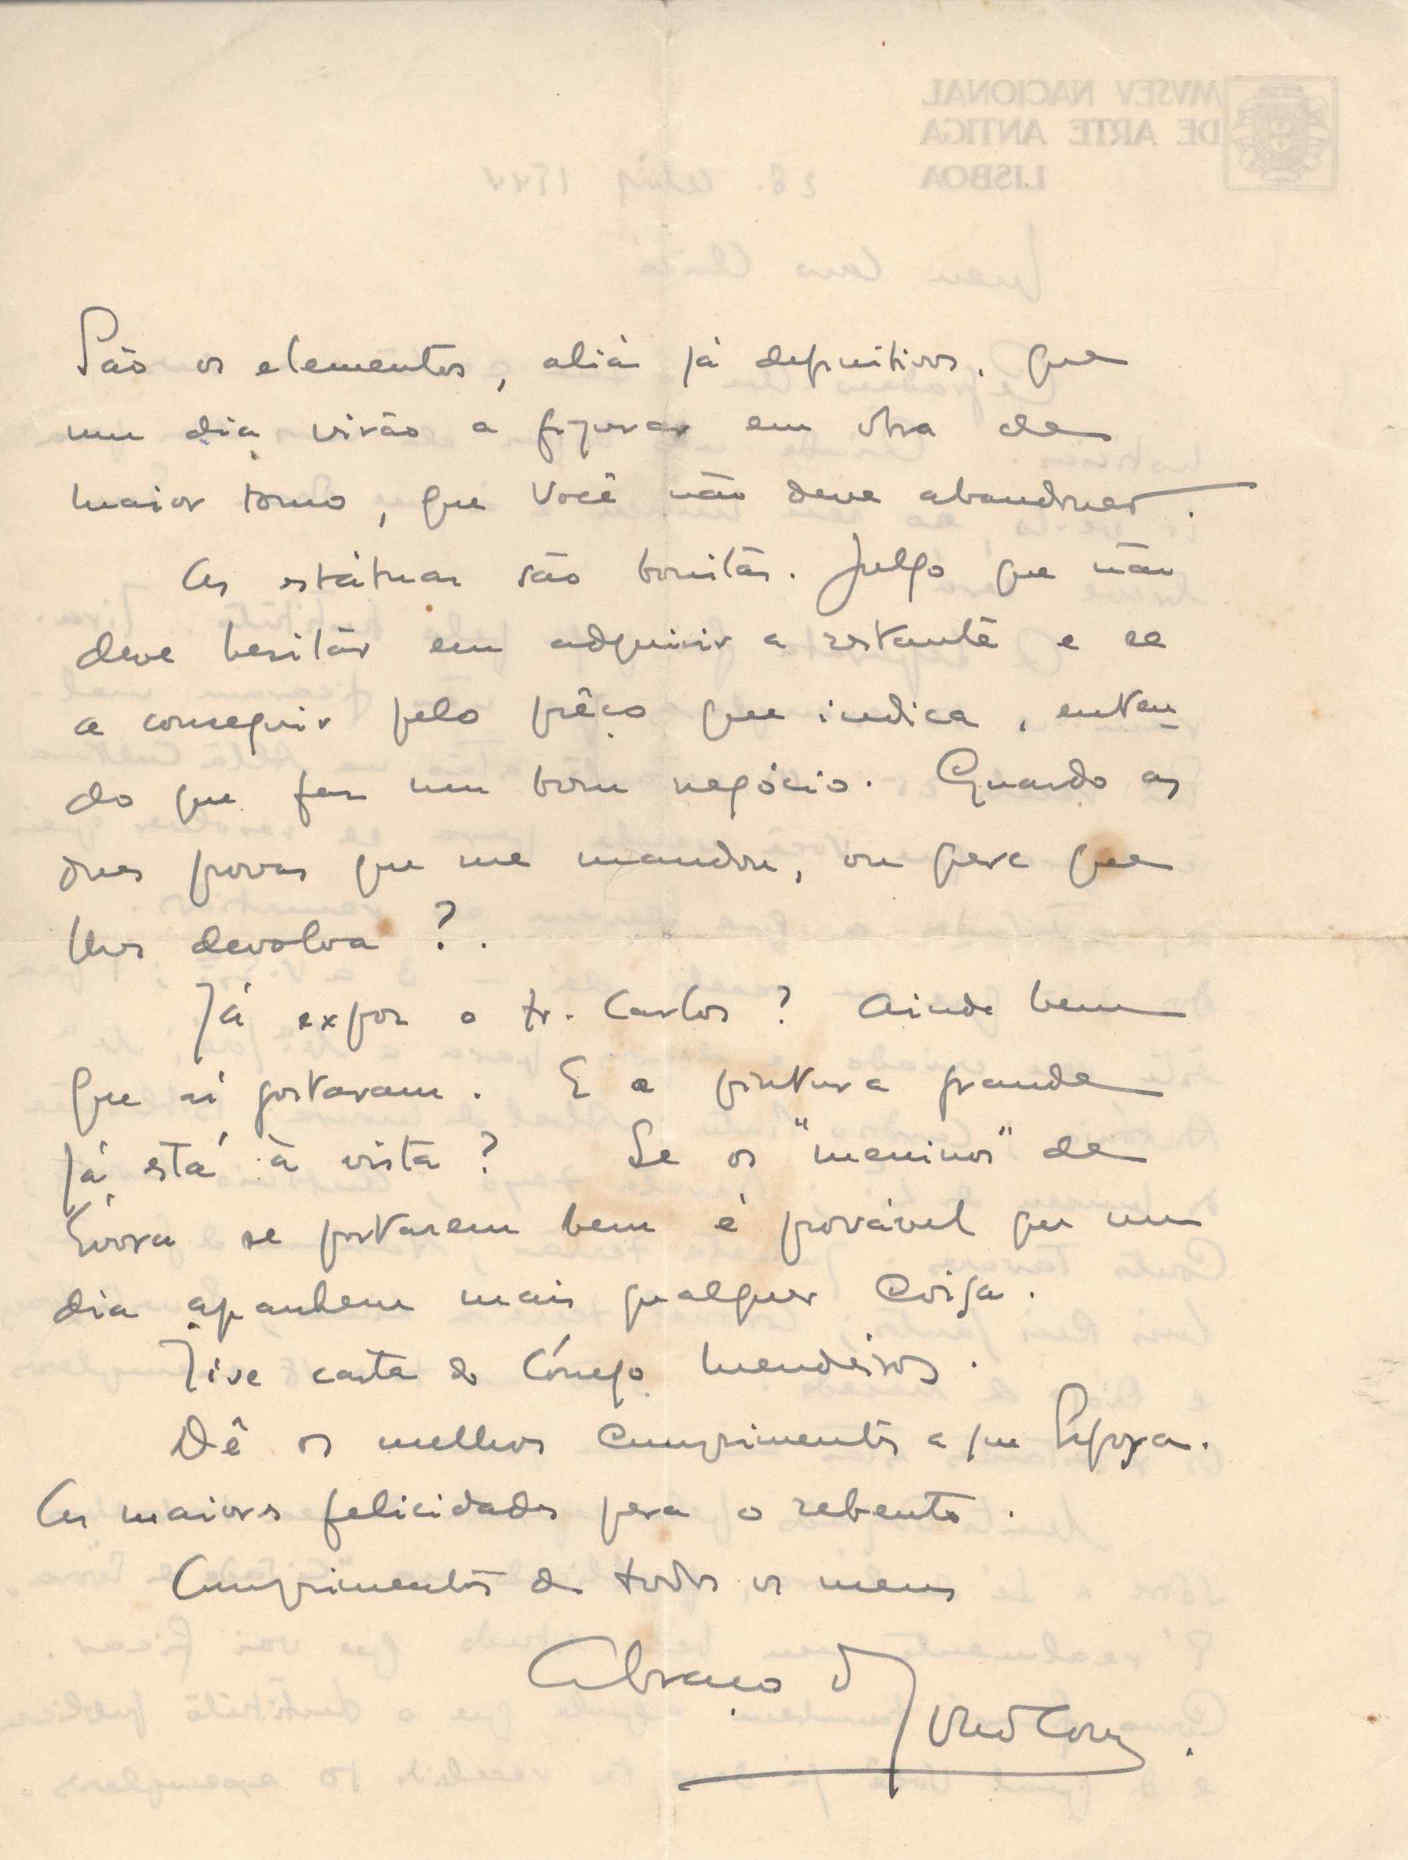 São os elementos, aliás já definitivos, que
um dia virão a figurar em obra de
maior tomo, que Você não deve abandonar.
As estátuas são bonitas. Julgo que não
deve hesitar em adquirir a restante e se
a conseguir pelo prêço que indica, enten
do que fez um bom negócio. Guardo as
duas provas que me mandou, ou quere que
lhas devolva?.
Já expoz o fr. Carlos? Ainda bem
que aí gostaram. E a pintura grande
já está à vista? Se os "meninos" de
Évora se portarem bem é provável que um
dia apanhem mais qualquer coisa.
Tive carta do Cónego Mendeiros.
Dê os melhores cumprimentos a sua Esposa.
As maiores felicidades para o rebento.
Cumprimentos de todos os meus
Abraço do
MVSEV NACIONAL
DE ARTE ANTIGA
LISBOA